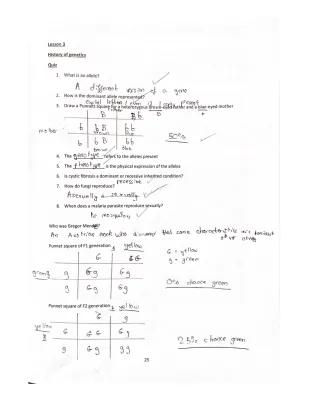 Lesson 3
History of genetics
Quiz
1. What is an allele?
A different version of a gene
2. How is the dominant allele represented?
Capital letters / even if 1 copy present
3. Draw a Punnett square for a heterozygous brown eyed father and a blue eyed mother
B b
mother b bB bb
brown blue
b bB bb
brown blue
50%
4. The genotype refers to the alleles present
5. The phenotype is the physical expression of the alleles
6. Is cystic fibrosis a dominant or recessive inherited condition?
recessive
7. How do fungi reproduce?
Asexually & sexually
8. When does a malaria parasite reproduce sexually?
In mosquito
Who was Gregor Mendel?
An Austrian monk who that some characteristics are dominant
over others
Punnet square of F1 generation yellow
G G
green g Gg Gg
g Gg Gg
G = yellow
g = green
0% chance green
Punnet square of F2 generation yellow
G g
yellow G GG Gg
g Gg gg
25% chance green
25